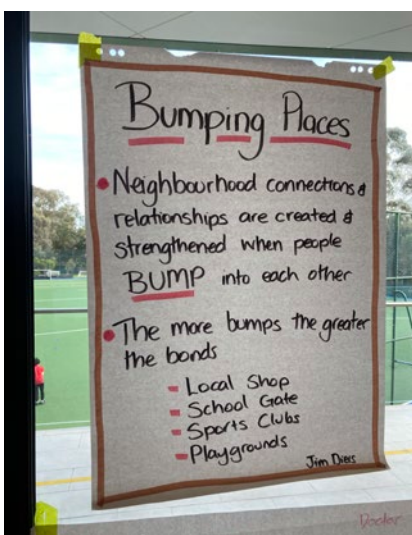 Bumping Places
• Neighbourhood connections &
relationships are created &
strengthened when people
BUMP into each other
• The more bumps the greater
the bonds
- Local Shop
- School Gate
- Sports Clubs
- Playgrounds
Jim Diers
Doctor